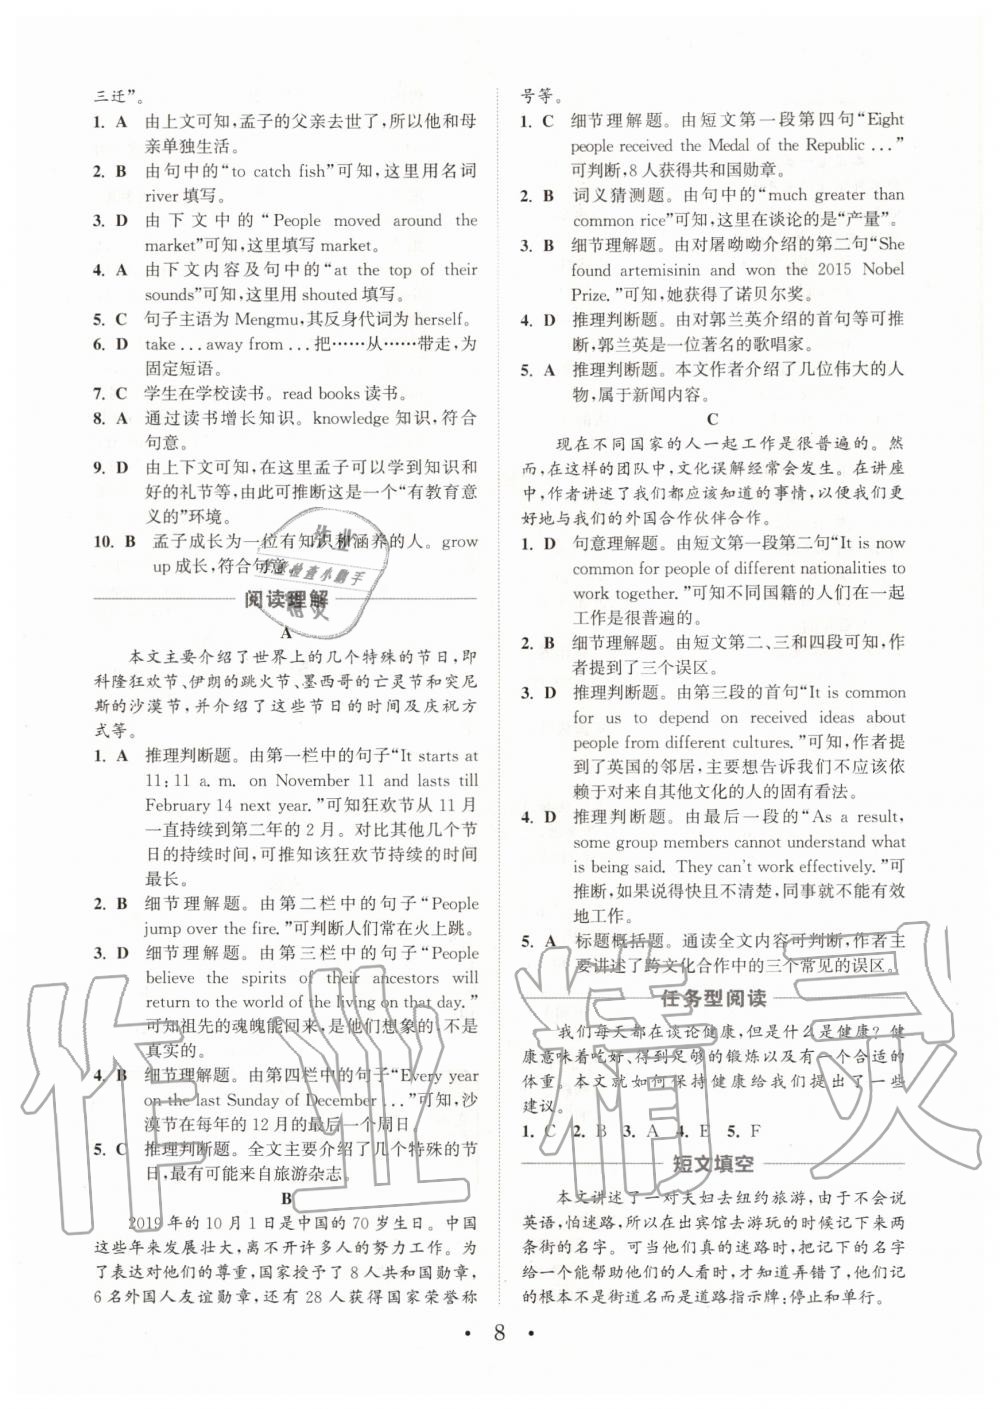 三迁”。
1. A 由上文可知,孟子的父亲去世了,所以他和母
亲单独生活。
2. B 由句中的“to catch fish”可知,这里用名词
river填写。
3. D 由下文中的“People moved around the
market”可知,这里填写 market。
4. A 由下文内容及句中的“at the top of their
sounds”可知,这里用 shouted 填写。
5. C 句子主语为 Mengmu,其反身代词为 herself。
6. D take ... away from ... 把……从……带走,为
固定短语。
7. C 学生在学校读书。read books 读书。
8. A 通过读书增长知识。knowledge 知识,符合
句意。
9. D 由上下文可知,在这里孟子可以学到知识和
好的礼节等,由此可推断这是一个“有教育意
义的”环境。
10. B 孟子成长为一位有知识和涵养的人。grow
up 成长,符合句意。
阅读理解
A
本文主要介绍了世界上的几个特殊的节日,即
科隆狂欢节、伊朗的跳火节、墨西哥的亡灵节和突尼
斯的沙漠节,并介绍了这些节日的时间及庆祝方
式等。
1. A 推理判断题。由第一栏中的句子“It starts at
11:11 a. m. on November 11 and lasts till
February 14 next year. ”可知狂欢节从 11 月
一直持续到第二年的 2 月。对比其他几个节
日的持续时间,可推知该狂欢节持续的时间
最长。
2. B 细节理解题。由第二栏中的句子“People
jump over the fire. ”可判断人们常在火上跳。
3. D 细节理解题。由第三栏中的句子“People
believe the spirits of their ancestors will
return to the world of the living on that day. ”
可知祖先的魂魄能回来,是他们想象的,不是
真实的。
4. B 细节理解题。由第四栏中的句子“Every year
on the last Sunday of December ... ”可知,沙
漠节在每年的 12 月的最后一个周日。
5. C 推理判断题。全文主要介绍了几个特殊的节
日,最有可能来自旅游杂志。
B
2019 年的 10 月 1 日是中国的 70 岁生日。中国
这些年来发展壮大,离不开许多人的努力工作。为
了表达对他们的尊重,国家授予了 8 人共和国勋章,
6 名外国人友谊勋章,还有 28 人获得国家荣誉称
号等。
1. C 细节理解题。由短文第一段第四句“Eight
people received the Medal of the Republic ... ”
可判断,8 人获得共和国勋章。
2. B 词义猜测题。由句中的“much greater than
common rice”可知,这里在谈论的是“产量”。
3. B 细节理解题。由对屠呦呦介绍的第二句“She
found artemisinin and won the 2015 Nobel
Prize. ”可知,她获得了诺贝尔奖。
4. D 推理判断题。由对郭兰英介绍的首句等可推
断,郭兰英是一位著名的歌唱家。
5. A 推理判断题。本文作者介绍了几位伟大的人
物,属于新闻内容。
C
现在不同国家的人一起工作是很普遍的。然
而,在这样的团队中,文化误解经常会发生。在讲座
中,作者讲述了我们都应该知道的事情,以便我们更
好地与我们的外国合作伙伴合作。
1. D 句意理解题。由短文第一段第二句“It is now
common for people of different nationalities to
work together. ”可知不同国籍的人们在一起
工作是很普遍的。
2. B 细节理解题。由短文第二、三和四段可知,作
者提到了三个误区。
3. D 推理判断题。由第三段的首句“It is common
for us to depend on received ideas about
people from different cultures. ”可知,作者提
到了英国的邻居,主要想告诉我们不应该依
赖于对来自其他文化的人的固有看法。
4. D 推理判断题。由最后一段的“As a result,
some group members cannot understand what
is being said. They can't work effectively. ”可
推断,如果说得快且不清楚,同事就不能有效
地工作。
5. A 标题概括题。通读全文内容可判断,作者主
要讲述了跨文化合作中的三个常见的误区。
任务型阅读
我们每天都在谈论健康,但是什么是健康?健
康意味着吃好、得到足够的锻炼以及有一个合适的
体重。本文就如何保持健康给我们提出了一些
建议。
1. C 2. B 3. A 4. E 5. F
短文填空
本文讲述了一对夫妇去纽约旅游,由于不会说
英语,怕迷路,所以在出宾馆去游玩的时候记下来两
条街的名字。可当他们真的迷路时,把记下的名字
给一个能帮助他们的人看时,才知道弄错了,他们记
的根本不是街道名而是道路指示牌:停止和单行。
• 8 •
作业精灵
作业
作业检查小助手
精灵